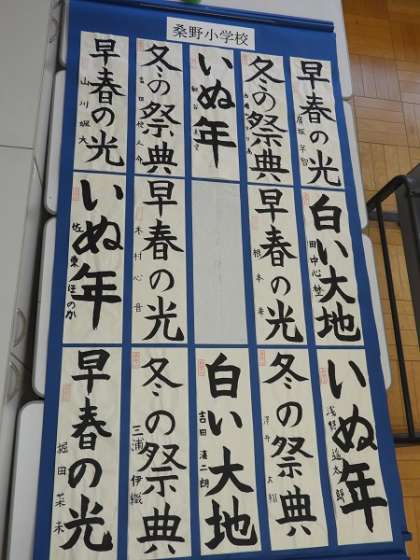 桑野小学校
早春の光
冬の祭典
いぬ年
冬の祭典
早春の光
山川颯大
白い大地
田中心埜
早春の光
根本
早春の光
木村心音
いぬ年
佐東ほのか
いぬ年
浅野
太郎
冬の祭典
白い大地
吉田湊二朗
冬の祭典
三浦伊織
早春の光
堀田菜未